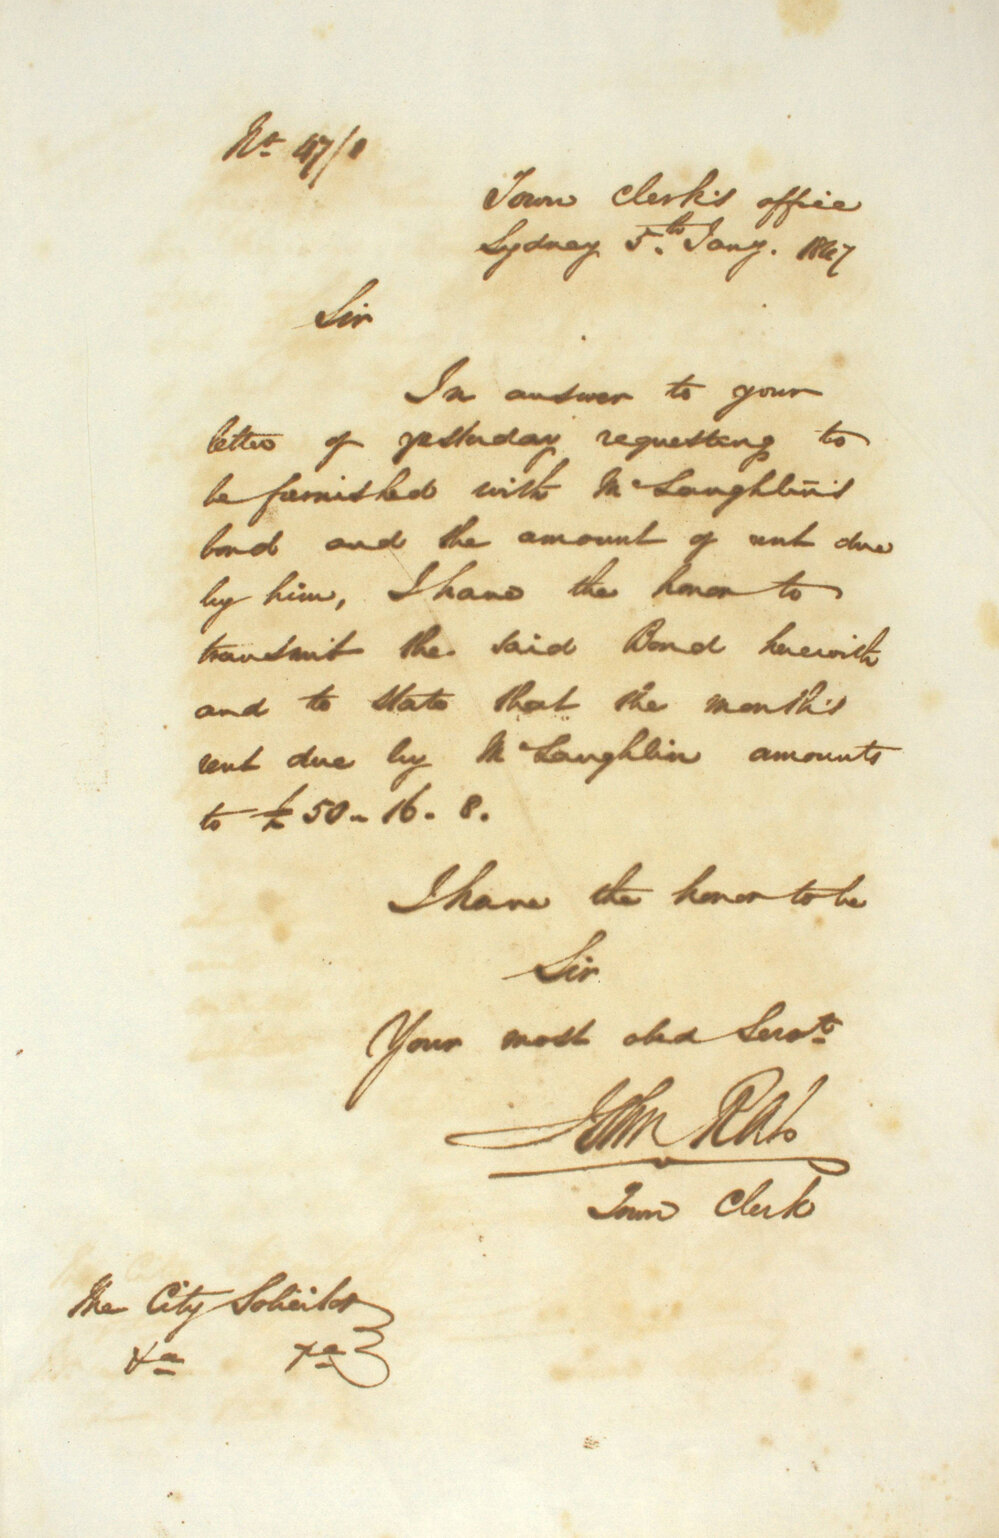 No. 47/1
Town Clerk's office
Sydney 5th. Jany. 1847
Sir
In answer to your
letter of yesterday requesting to
be furnished with McLaughlin's
bond and the amount of rent due
by him, I have the honor to
transmit the said Bond herewith
and to state that the month's
rent due by McLaughlin amounts
to £50-16-8.
I have the honor to be
Sir
Your most obed Servt.
John Rae
Town Clerk
The City Solicitor
&a &a